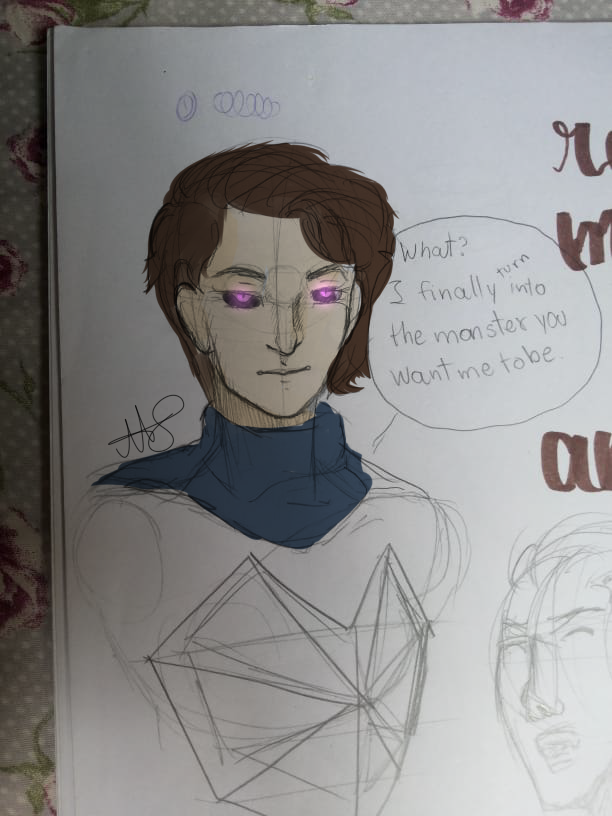 What?
I finally turn into
the monster you
want me to be.
re
m
an